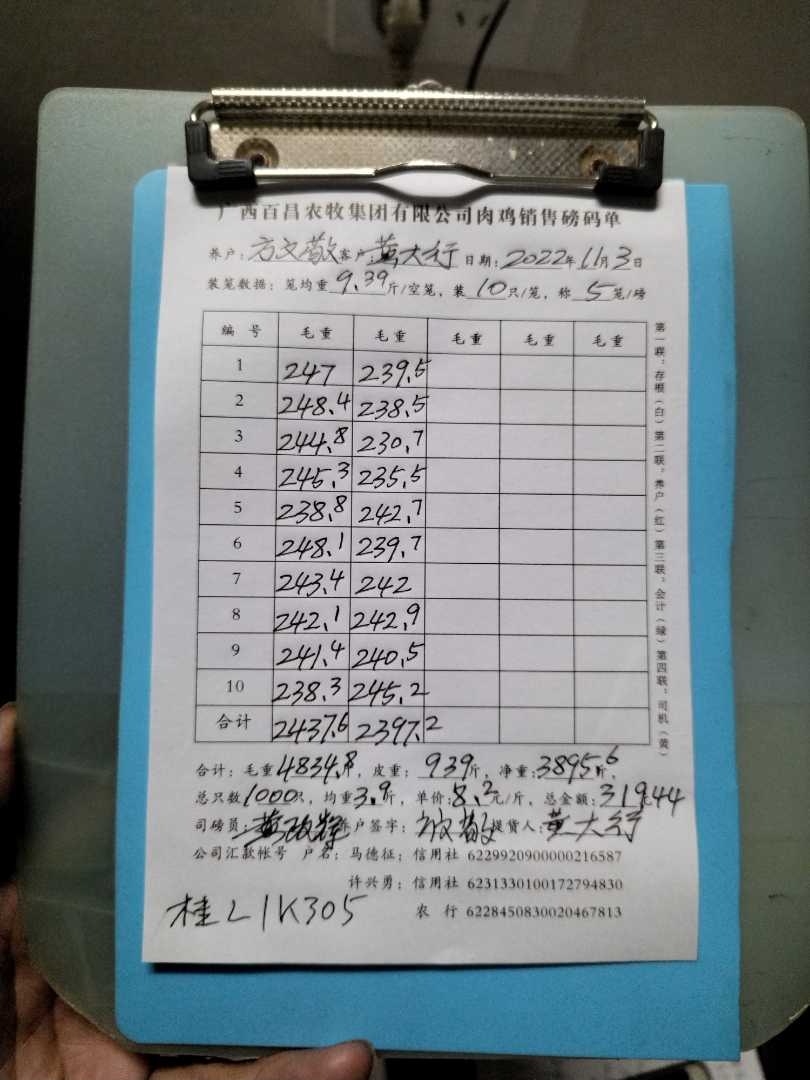 广西百昌农牧集团有限公司肉鸡销售磅码单
养户：方文敬 客户 黄大行 日期：2022年11月3日
装笼数据：笼均重9.39斤/空笼，装10只/笼，称5笼/磅
编号 毛重 毛重 毛重 毛重 毛重
1 247 239.5
2 248.4 238.5
3 244.8 230.7
4 245.3 235.5
5 238.8 242.7
6 248.1 239.7
7 243.4 242
8 242.1 242.9
9 241.4 240.5
10 238.3 245.2
合计 2437.6 2397.2
合计：毛重4834.8斤，皮重：939斤，净重：3895.6斤，
总只数1000只，均重3.9斤，单价：8.2元/斤，总金额：31944
司磅员： 养户签字：方文敬 提货人：黄大行
公司汇款帐号 户名：马德征：信用社 6229920900000216587
许兴勇：信用社 6231330100172794830
农行 6228450830020467813
桂L1K305
第一联：存根（白）第二联：养户（红）第三联：会计（绿）第四联：司机（黄）